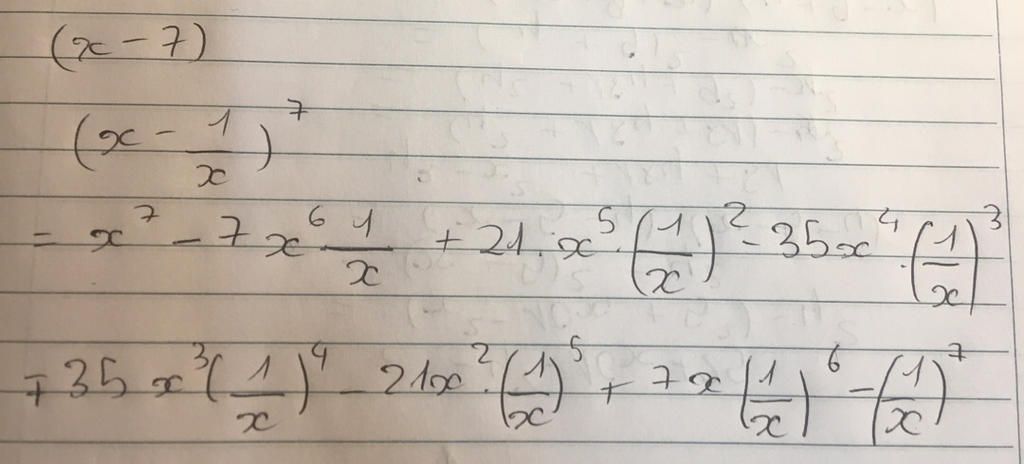 (x - 7)
(x - 1/x)^7
= x^7 - 7x^6 1/x + 21.x^5.(1/x)^2 - 35x^4.(1/x)^3
+ 35x^3(1/x)^4 - 21x^2.(1/x)^5 + 7x(1/x)^6 - (1/x)^7